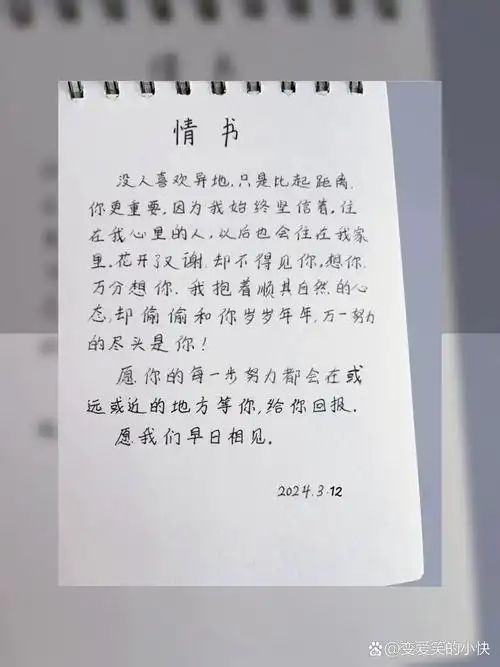 情书
没人喜欢异地,只是比起距离,
你更重要,因为我始终坚信着,住
在我心里的人,以后也会住在我家
里,花开了又谢,却不得见你,想你,
万分想你,我抱着顺其自然的心
态,却偷偷和你岁岁年年,万一努力
的尽头是你!
愿你的每一步努力都会在或
远或近的地方等你,给你回报。
愿我们早日相见。
2024.3.12
@变爱笑的小快